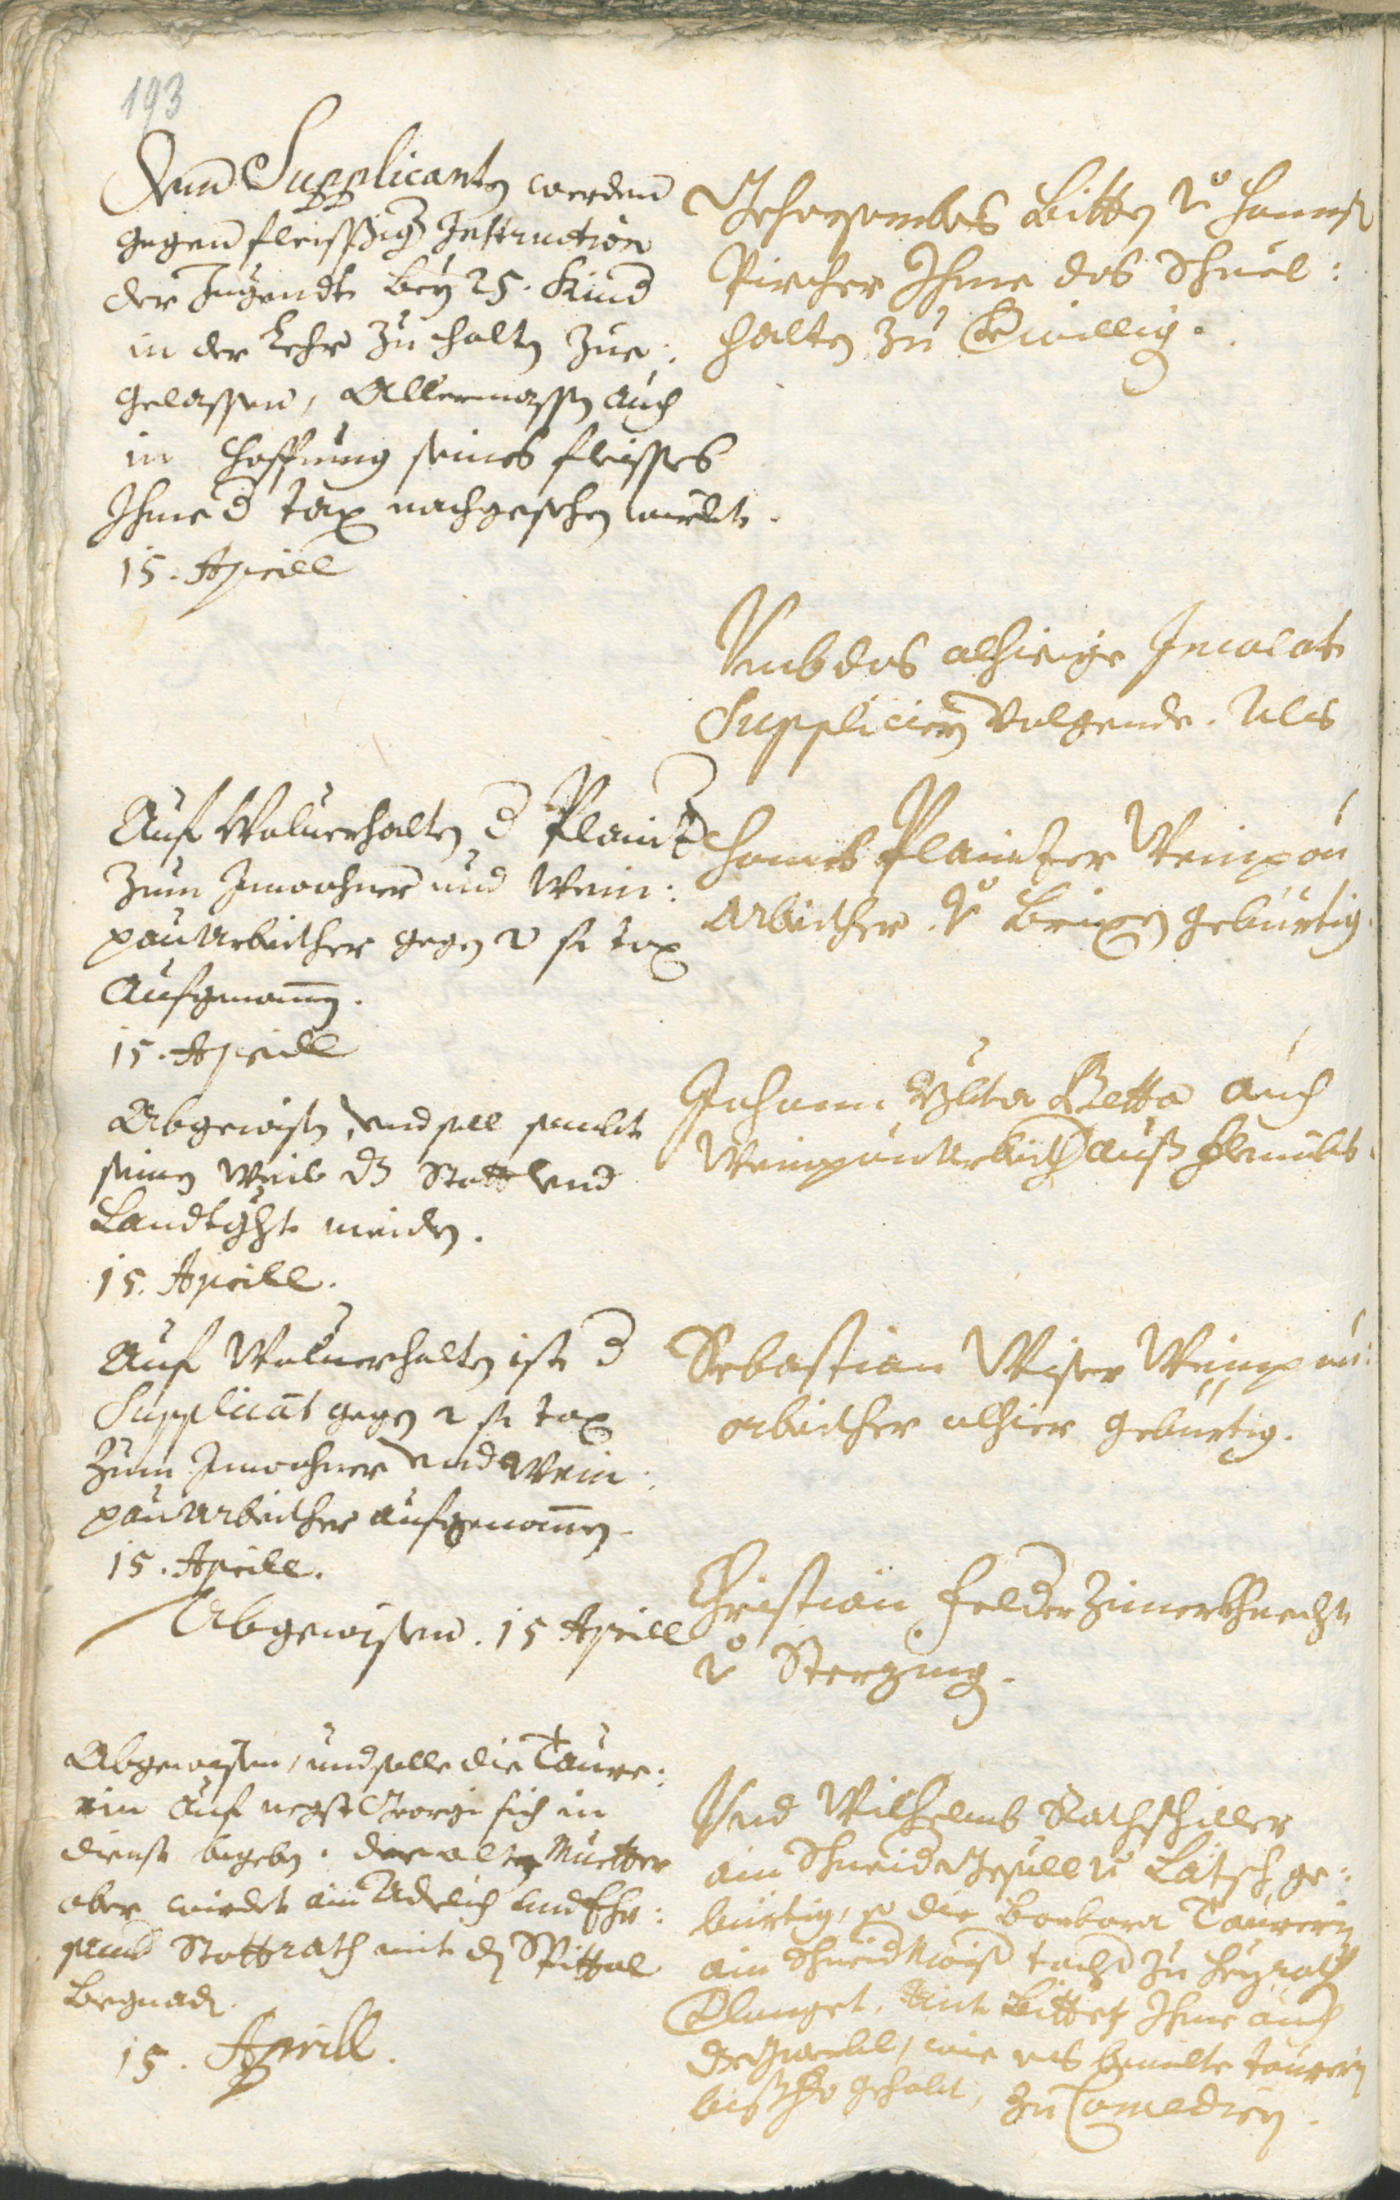 193
Dem Supplicanten werden
gegen fleissiger Instruction
der Jugendt bey 25. Kind
in der Lehr zu halten zue:
gelassen, Allermassen auch
in Hoffnung seines fleisses
Ihme d Tax nachgesehen wirdt.
15. Aprill
Gehorsambes Bitten v Hannß
Pircher Ihme das Schuel:
halten zu bewillig.
Umb das alhieige Incolat
Supplicieren volgende. Als
Auf Wolverhalten d Plaickner
zum Inwohner und Wein:
pauarbeither gegen 2 fl Tax
Aufgenommen.
15. Aprill
Hanns Plaickner Weinpau
arbeither v Brixen gebürtig.
Abgewisen, und soll sambt
seinem Weib dz Statt und
Landtgericht meiden.
15. Aprill.
Johann Betta auch
Weinpauarbeither auß
Auf Wolverhalten ist d
Supplicant gegen 2 fl Tax
zum Inwohner und Wein:
pauarbeither aufgenommen.
15. Aprill.
Sebastian Wiser Weinpau:
arbeither alhier gebürtig.
Abgewisen. 15 Aprill
Christian Felder Zimerkhnecht
v Sterzing.
Abgewisen, und solle die Taure:
rin auf negst Georgi sich in
dienst begeben. der alten Muetter
aber wirdet ain Adelich und Ehr:
samb Stattrath mit dem Spittal
Begnaden.
15. Aprill.
Und Wilhelmb Rathschiller
ain Schneider Gesell v Latsch ge:
bürtig, so die Barbara Taurerin
ain Schneid Maister tochter zu heyrath
Verlanget, Bittet Ihme auch
, wie es bemelte Taurerin
bißher gehabt, zu .